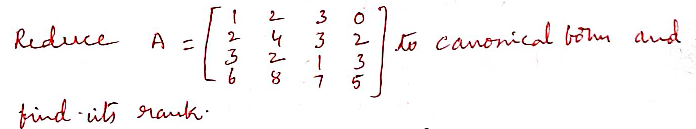 Reduce A = [ 1 2 3 0 ; 2 4 3 2 ; 3 2 1 3 ; 6 8 7 5 ] to canonical form and
find its rank.